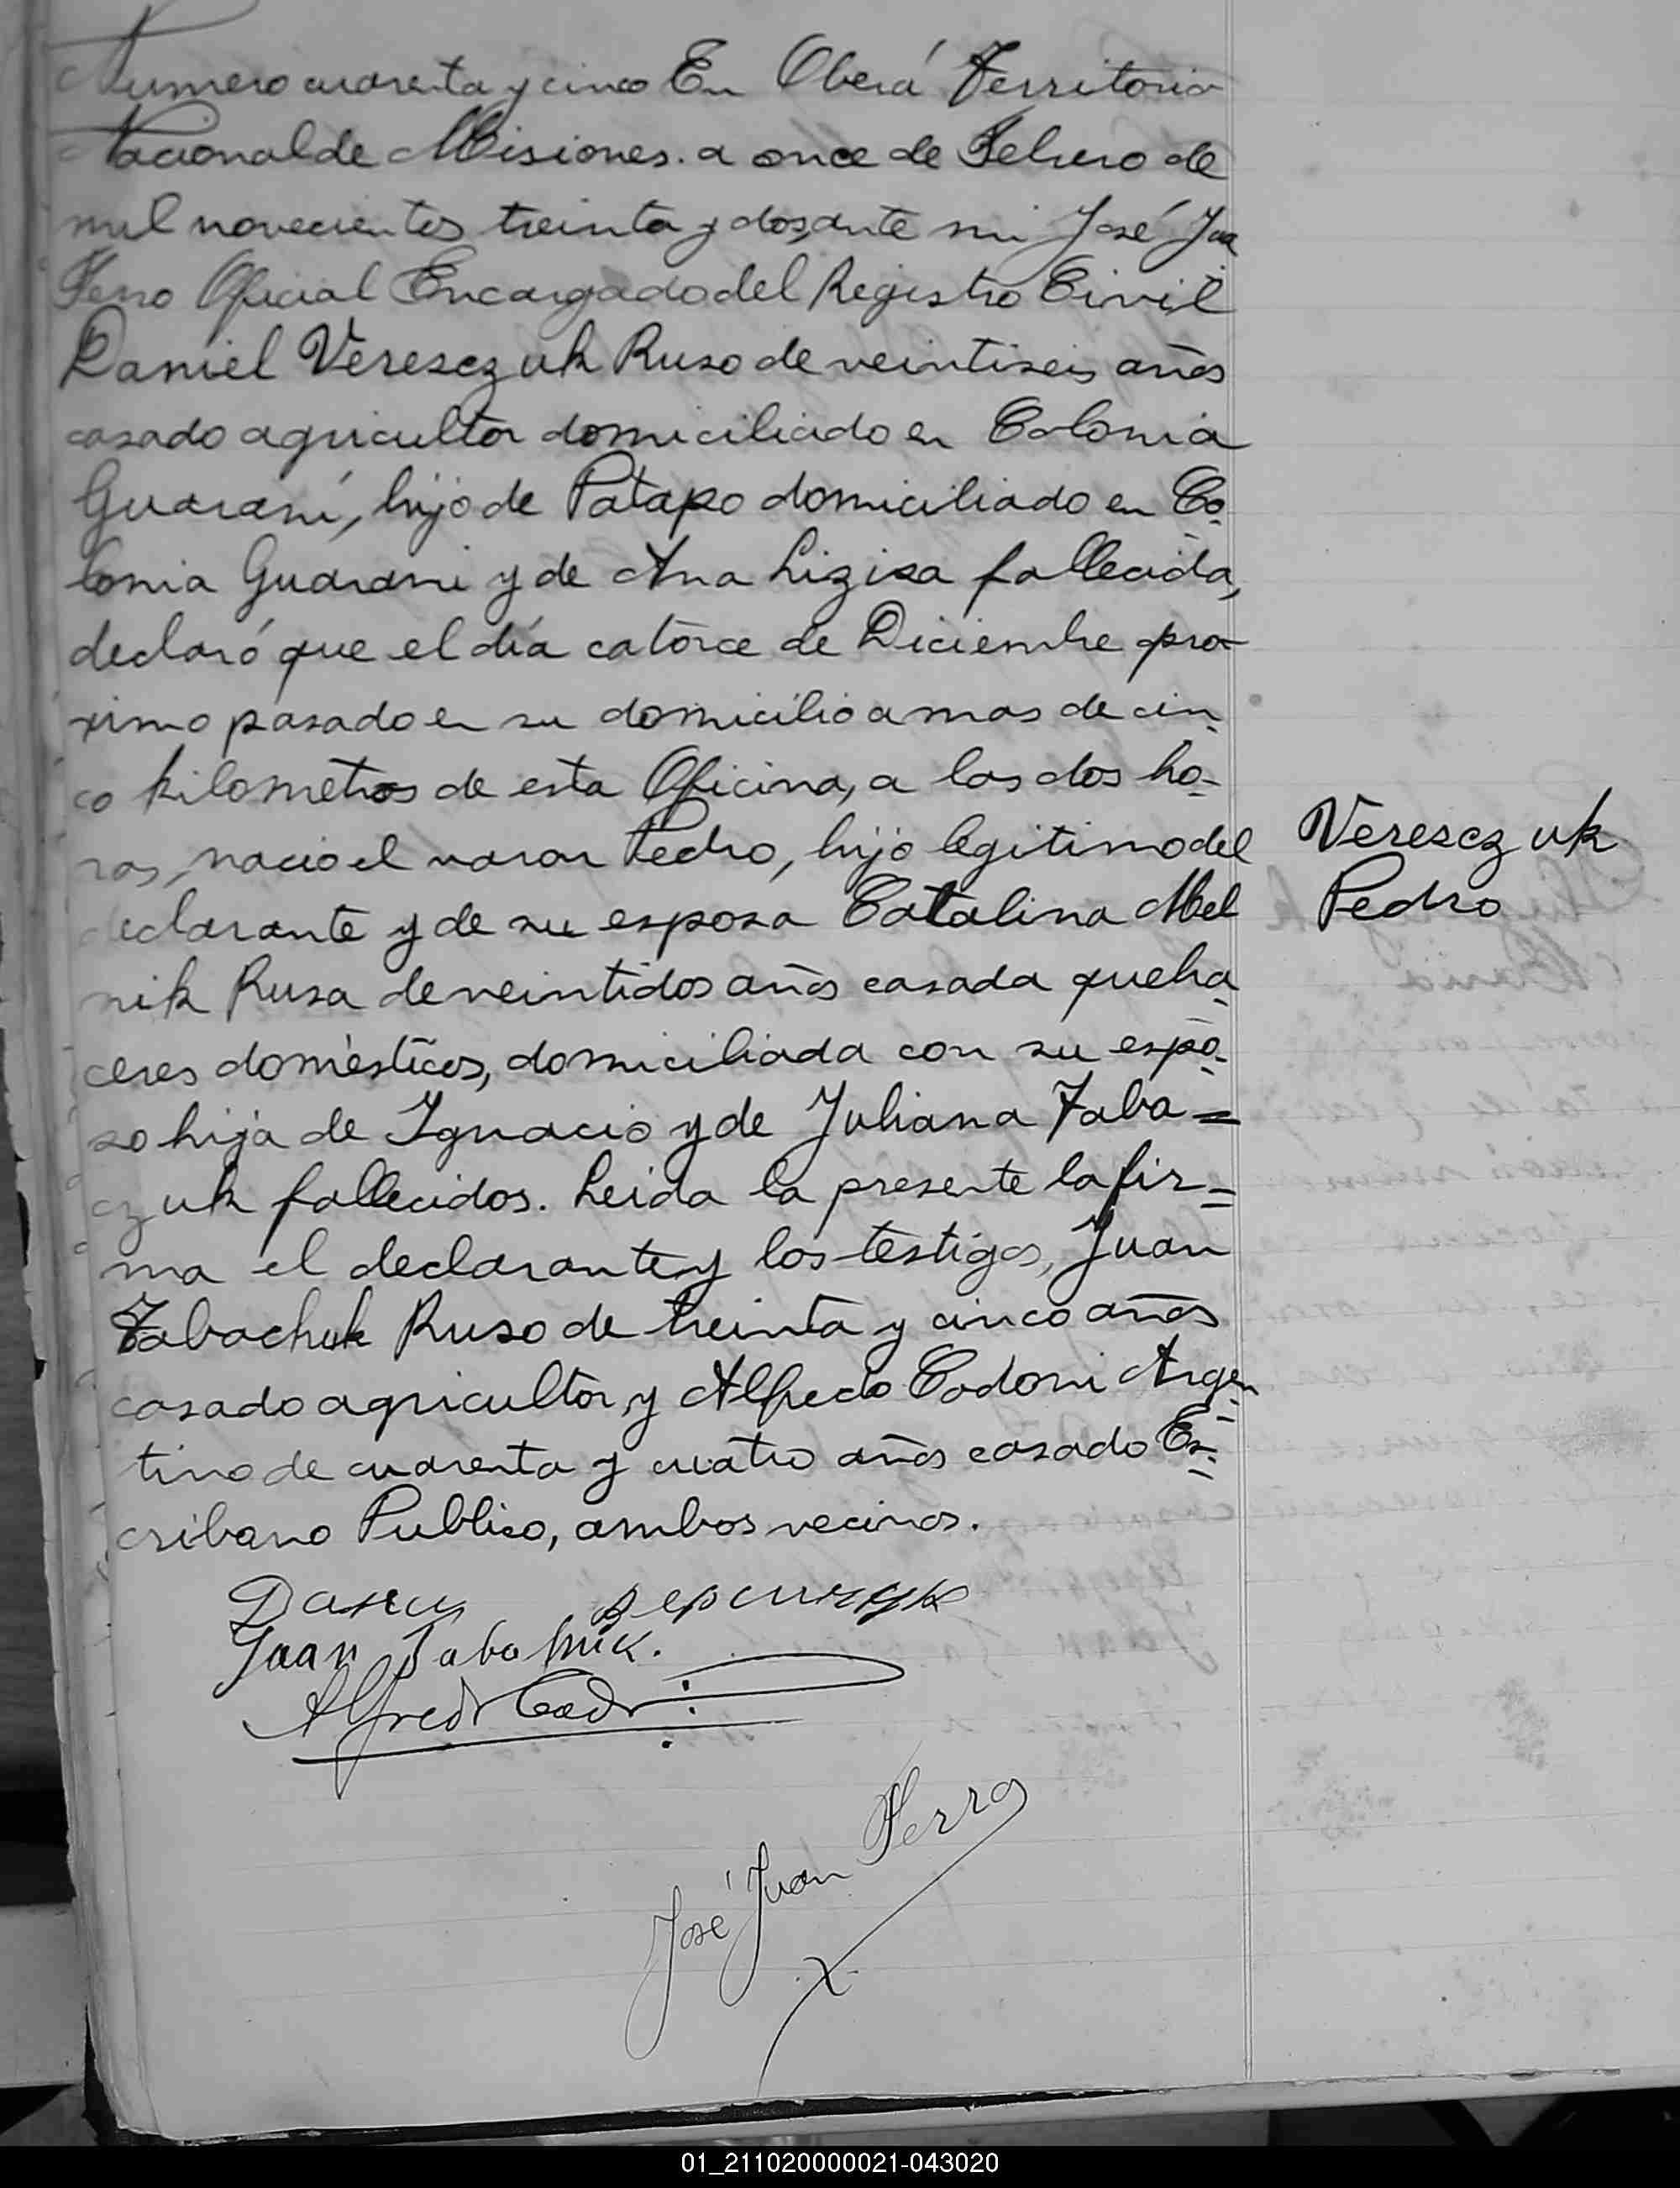 Numero cuarenta y cinco En Oberá Territorio
Nacional de Misiones. a once de Febrero de
mil novecientos treinta y dos, ante mi José Jua
Ferro Oficial Encargado del Registro Civil
Daniel Veresczuk Ruso de veintiseis años
casado agricultor domiciliado en Colonia
Guaraní, hijo de Patapo domiciliado en Co-
lonia Guarani y de Ana Lizisa fallecida,
declaró que el día catorce de Diciembre pro
ximo pasado en su domicilio a mas de cin-
co kilometros de esta Oficina, a las dos ho-
ras, nacio el varon Pedro, hijo legitimo del
declarante y de su esposa Catalina Mel
nik Rusa de veintidos años casada queha-
ceres domésticos, domiciliada con su espo-
so hija de Ignacio y de Juliana Taba=
czuk fallecidos. Leida la presente la fir=
ma el declarante y los testigos, Juan
Tabachuk Ruso de treinta y cinco años
casado agricultor, y Alfredo Codoni Argen-
tino de cuarenta y cuatro años casado Es-
cribano Publico, ambos vecinos.
Veresczuk
Pedro
Juan
Alfredo
José Juan Ferro
01_211020000021-043020